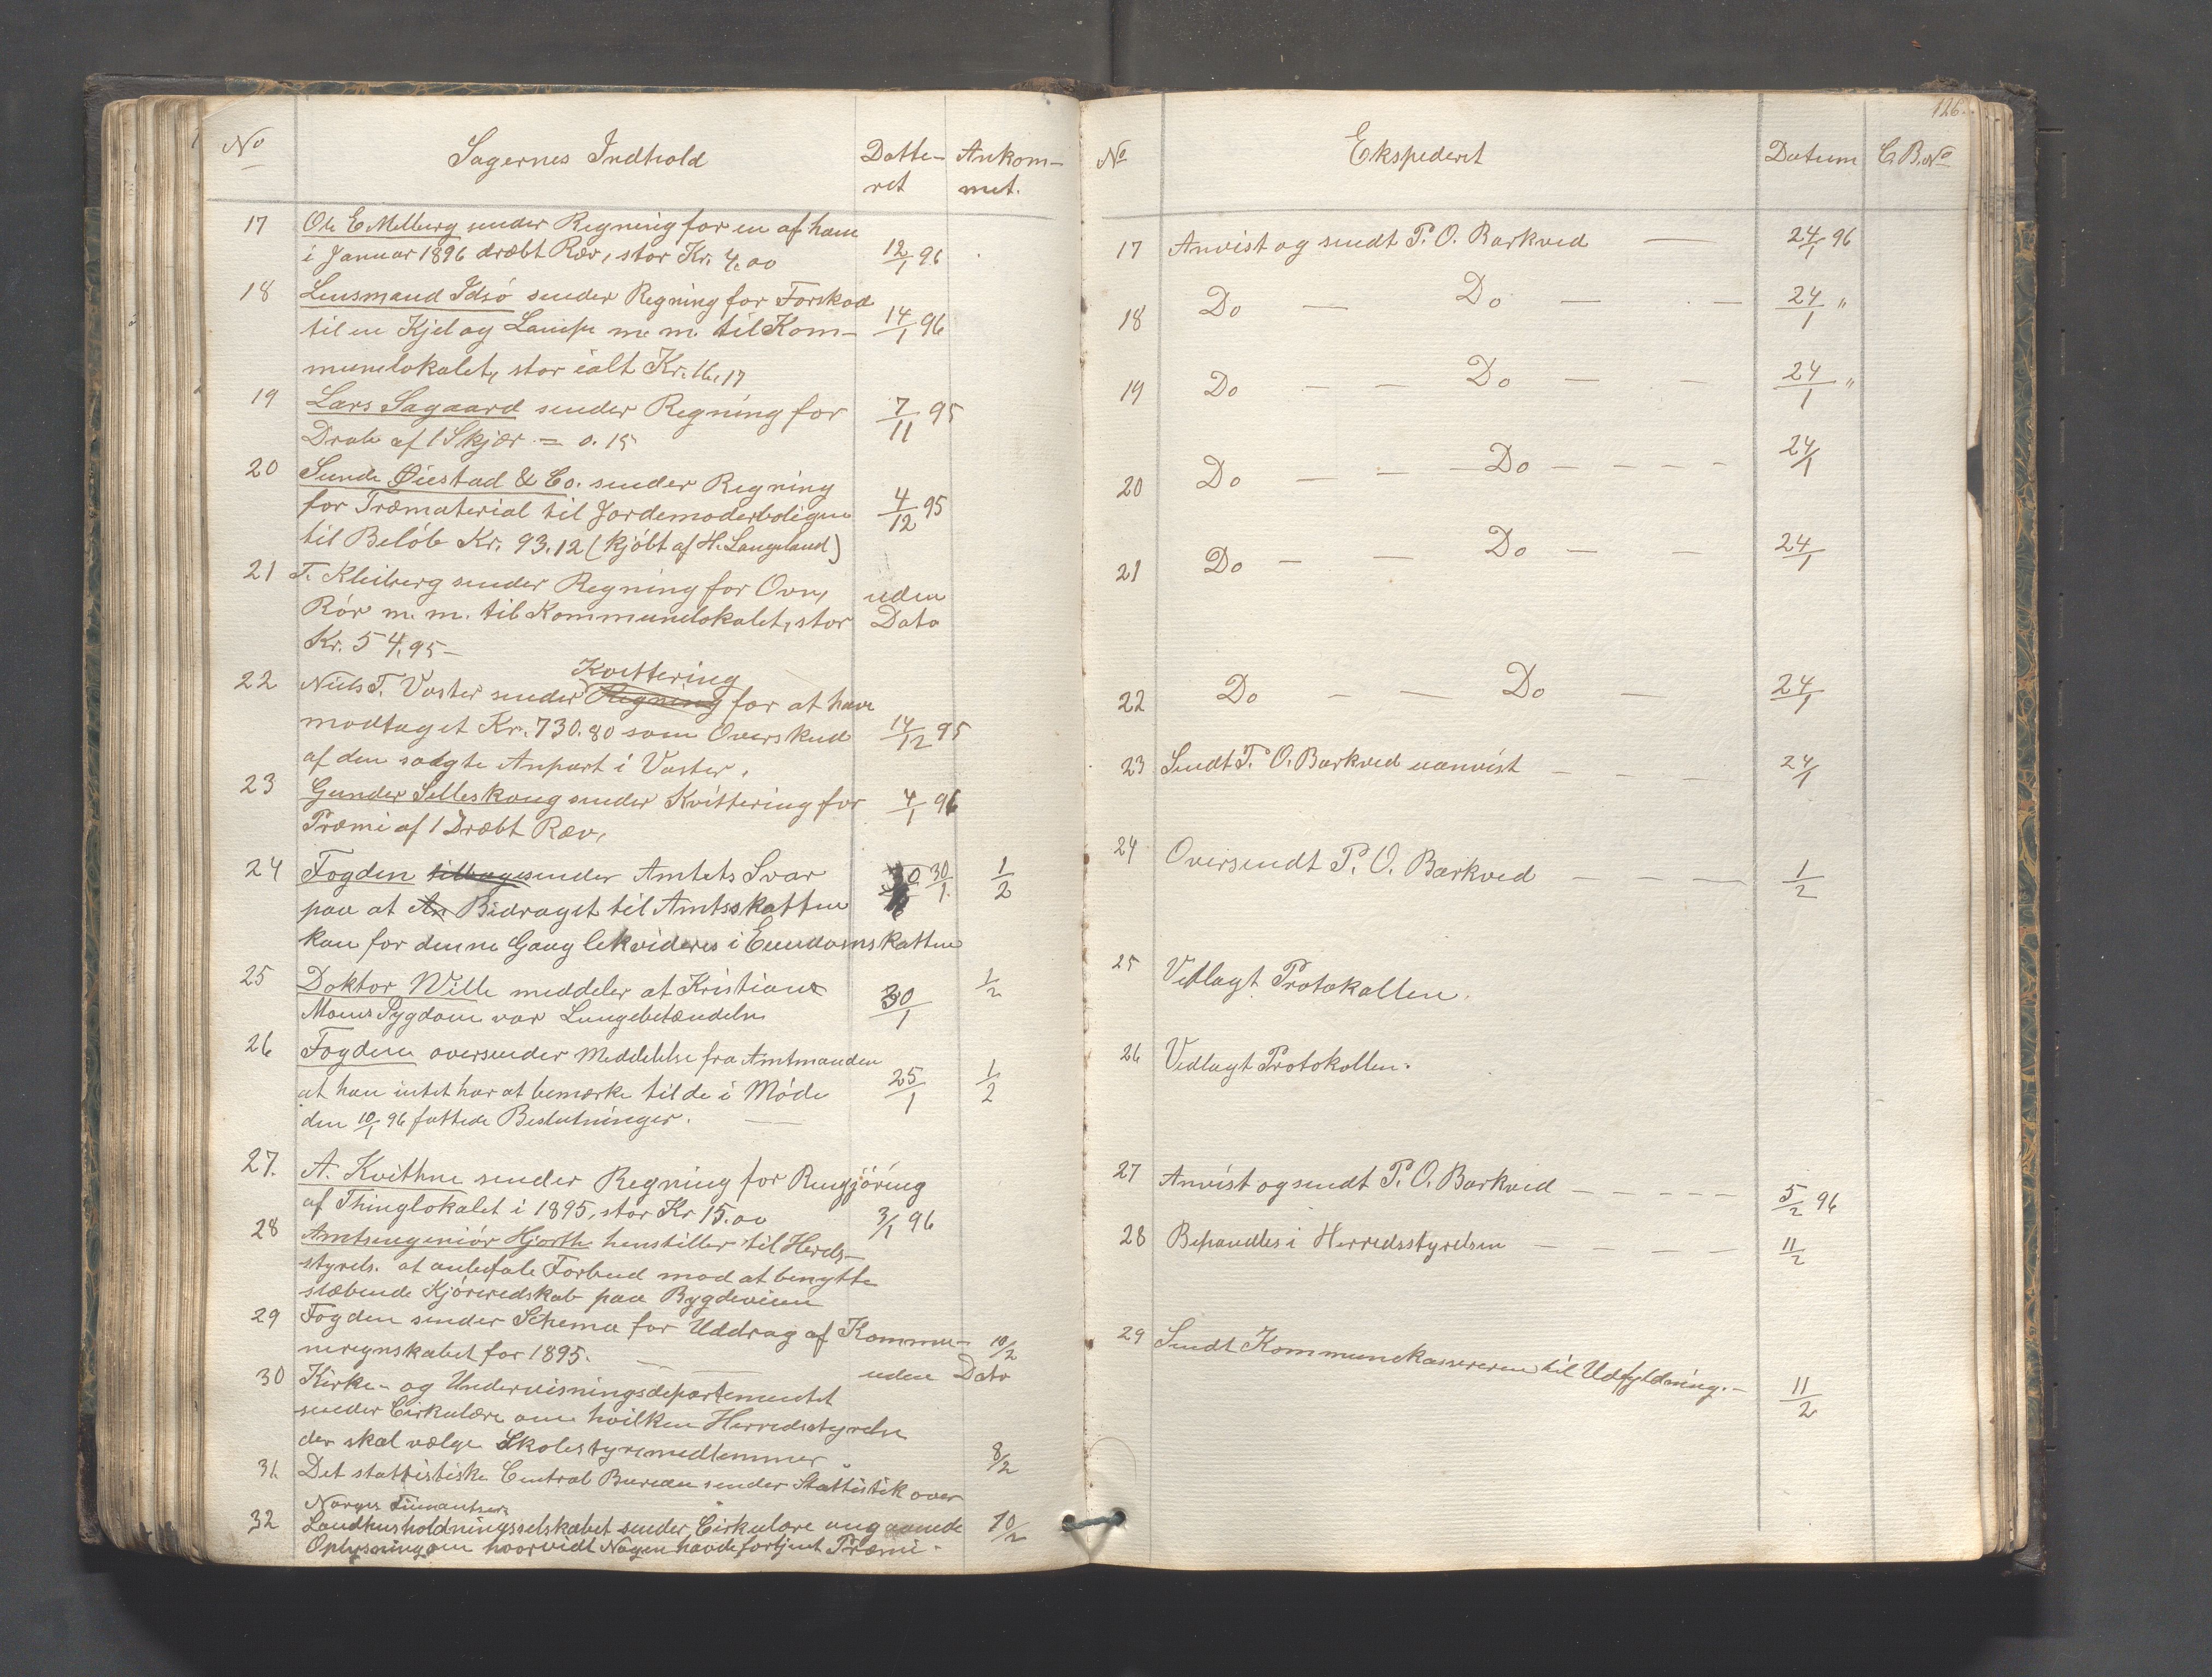 No
Sagernes Indhold
Datte-
ret
Ankom-
met.
17 Ole E Melberg sender Regning for en af ham
i Januar 1896 dræbt Ræv, stor Kr. 4,00 12/1 96
18 Lensmand Idsö sender Regning for Forskud
til en Kjel og Lampe m. m. til Kom- 14/1 96
munelokalet, stor ialt Kr. 16,17
19 Lars Sagaard sender Regning for 7/11 95
Drab af 1 Skjær = 0.15
20 Sunde Øiestad & Co. sender Regning
for Træmaterial til Jordemoderboligen 4/12 95
til Belöb Kr. 93.12 (kjöbt af H. Langeland)
21 T. Kleiberg sender Regning for Ovn, uden
Rör m. m. til Kommunelokalet, stor Dato
Kr. 54,95 –
Kvittering
22 Niels T. Vaster sender Regning for at have
modtaget Kr. 730.80 som Overskud 14/12 95
af den solgte Anpart i Vaster.
23 Gunder Selleskoug sender Kvittering for 4/1 96
Præmi af 1 Dræbt Ræv,
24 Fogden tilbagesender Amtets Svar 30/1. 1/2
paa at An Bidraget til Amtsskatten
kan for denne Gang likvideres i Eiendomsskatten
25 Doktor Wille meddeler at Kristians 30/1 1/2
Maus Sygdom var Lungebetændelse
26 Fogden oversender Meddelelse fra Amtmanden
at han intet har at bemærke til de i Möde 25/1 1/2
den 10/1 96 fattede Beslutninger. —
27. A. Kvithne sender Regning for Rengjöring
af Thinglokalet i 1895, stor Kr 15.00 3/1 96
28 Amtsingeniör Hjorth henstiller til Herds-
styrels. at anbefale Forbud mod at benytte
slæbende Kjöreredskab paa Bygdeveien
29 Fogden sender Schema for Uddrag af Kommu- 10/2
neregnskabet for 1895. — uden Dato
30 Kirke- og Undervisningsdepartementet
sender Cirkulære om hvilken Herredsstyrelse
der skal vælge Skolestyremedlemmer 8/2
31. Det stattistiske Central Bureau sender Stattistik over
Norges Finantser.
32 Landhusholdningsselskabet sender Cirkulære angaaende 10/2
Oplysning om hvorvidt Nogen havde fortjent Præmi.
126.
No
Ekspederet
Datum
C. B. No
17 Anvist og sendt P. O. Barkved — 24/1 96
18 Do — Do — — 24/1 "
19 Do — — Do — — 24/1 "
20 Do — — — Do — — — — 24/1
21 Do — — Do — — 24/1
22 Do — — Do — 24/1
23 Sendt P. O. Barkved uanvist — — — 24/1
24 Oversendt P. O. Barkved — — — 1/2
25 Vedlagt Protokollen.
26 Vedlagt Protokollen.
27 Anvist og sendt P. O. Barkved — — — — — 5/2 96
28 Behandles i Herredsstyrelsen — — — — 11/2
29 Sendt Kommunekassereren til Udfyldning. – 11/2